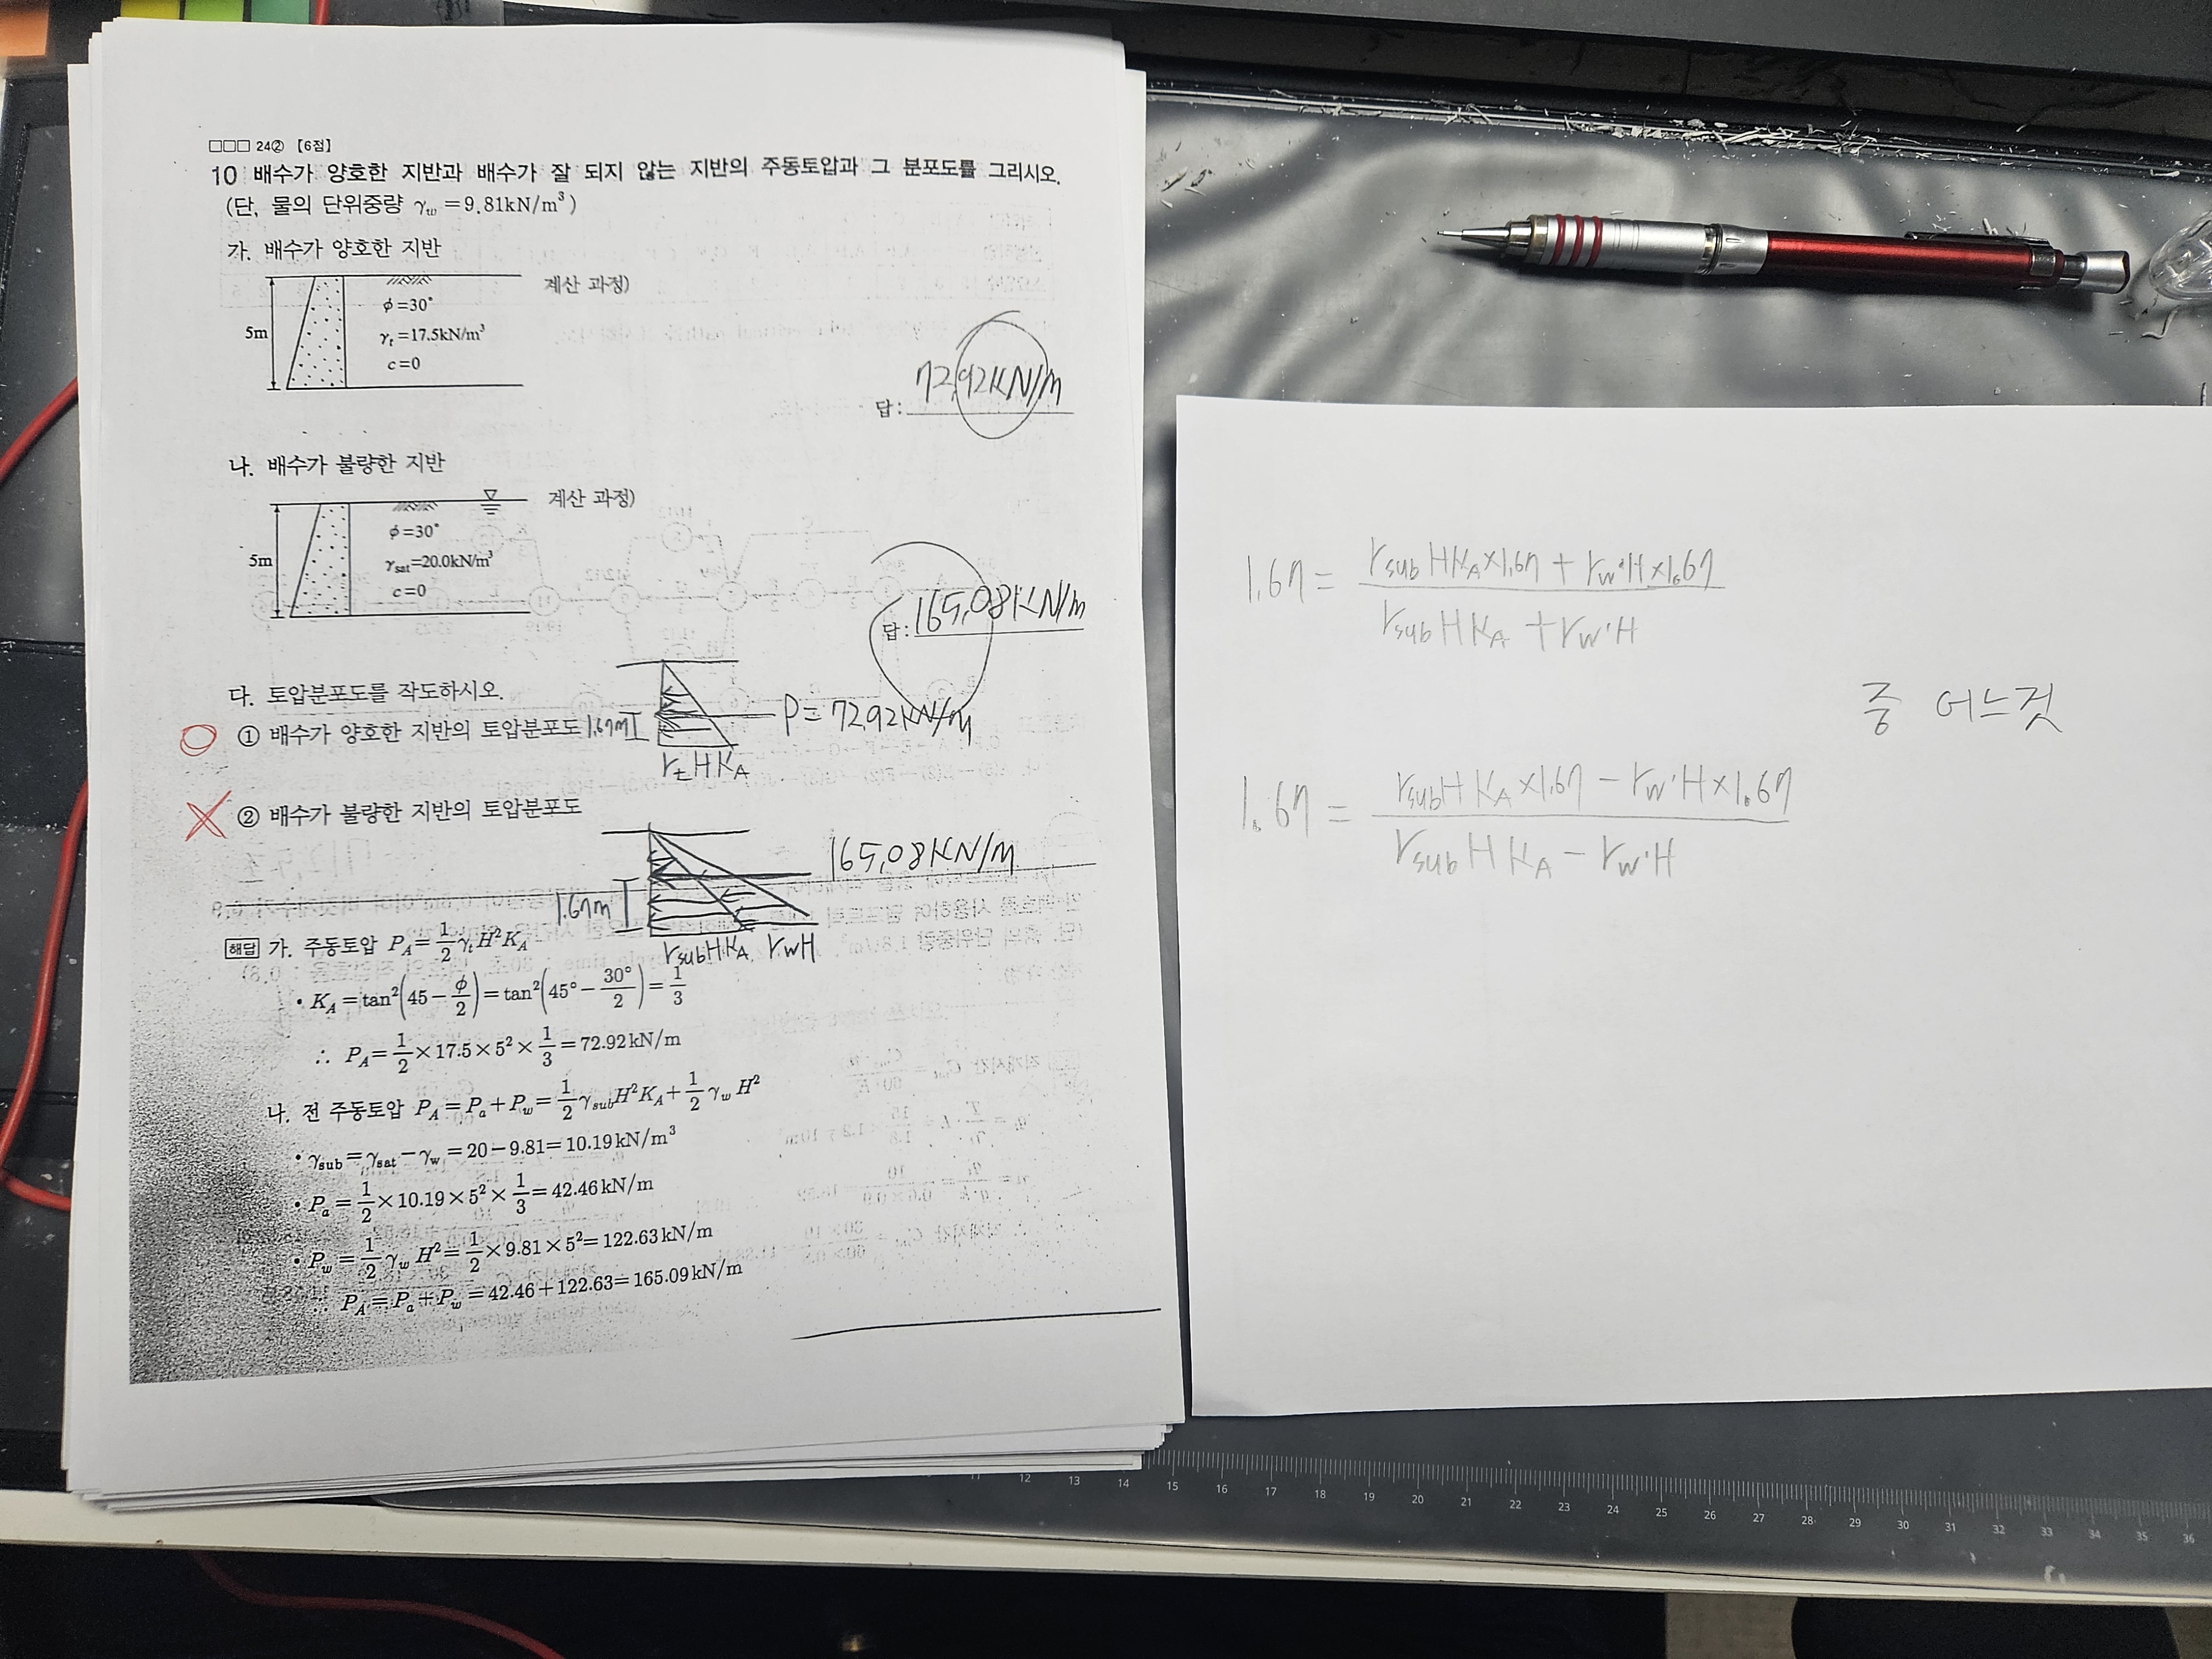 □□□ 24② 【6점】
10 배수가 양호한 지반과 배수가 잘 되지 않는 지반의 주동토압과 그 분포도를 그리시오.
(단, 물의 단위중량 γw = 9.81kN/m³)
가. 배수가 양호한 지반
계산 과정)
5m
φ=30°
γt=17.5kN/m³
c=0
답: 72.92KN/m
나. 배수가 불량한 지반
계산 과정)
5m
φ=30°
γsat=20.0kN/m³
c=0
답: 165.08KN/m
다. 토압분포도를 작도하시오.
① 배수가 양호한 지반의 토압분포도 1.67m P=72.92KN/m
rtHKA
② 배수가 불량한 지반의 토압분포도
165.08KN/m
1.67m
rsubHKA rwH
해답 가. 주동토압 PA = 1/2 γt H² KA
• KA = tan²(45 − φ/2) = tan²(45° − 30°/2) = 1/3
∴ PA = 1/2 × 17.5 × 5² × 1/3 = 72.92kN/m
나. 전 주동토압 PA = Pa + Pw = 1/2 γsub H² KA + 1/2 γw H²
• γsub = γsat − γw = 20 − 9.81 = 10.19kN/m³
• Pa = 1/2 × 10.19 × 5² × 1/3 = 42.46kN/m
• Pw = 1/2 γw H² = 1/2 × 9.81 × 5² = 122.63kN/m
∴ PA = Pa + Pw = 42.46 + 122.63 = 165.09kN/m
1.67 = (rsub H KA × 1.67 + rw·H × 1.67) / (rsub H KA + rw·H)
중 어느것
1.67 = (rsub H KA × 1.67 − rw·H × 1.67) / (rsub H KA − rw·H)
11 12 13 14 15 16 17 18 19 20 21 22 23 24 25 26 27 28 29 30 31 32 33 34 35 36